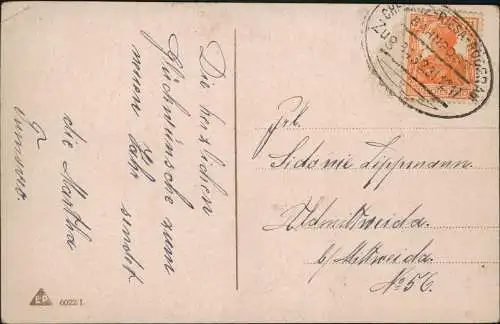 Die herzlichen
Glückwünsche zum
neuen Jahr sendet
die Martha
CHEMNITZ-RIESA-
BAHNPOST
ZUG
Frl.
Sidonie Lippmann
Altmittweida.
b/ Mittweida
No 56.
EP 6022/1.